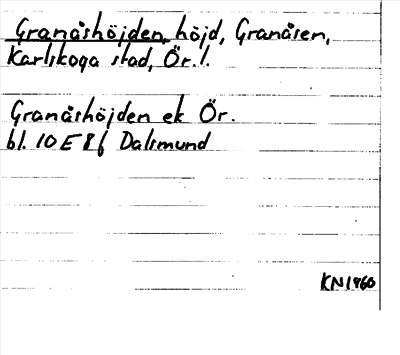 Granåshöjden, höjd, Granåsen,
Karlskoga stad, Ör.l.
Granåshöjden ek Ör.
bl. 10E8f Dalsmund
KN1960